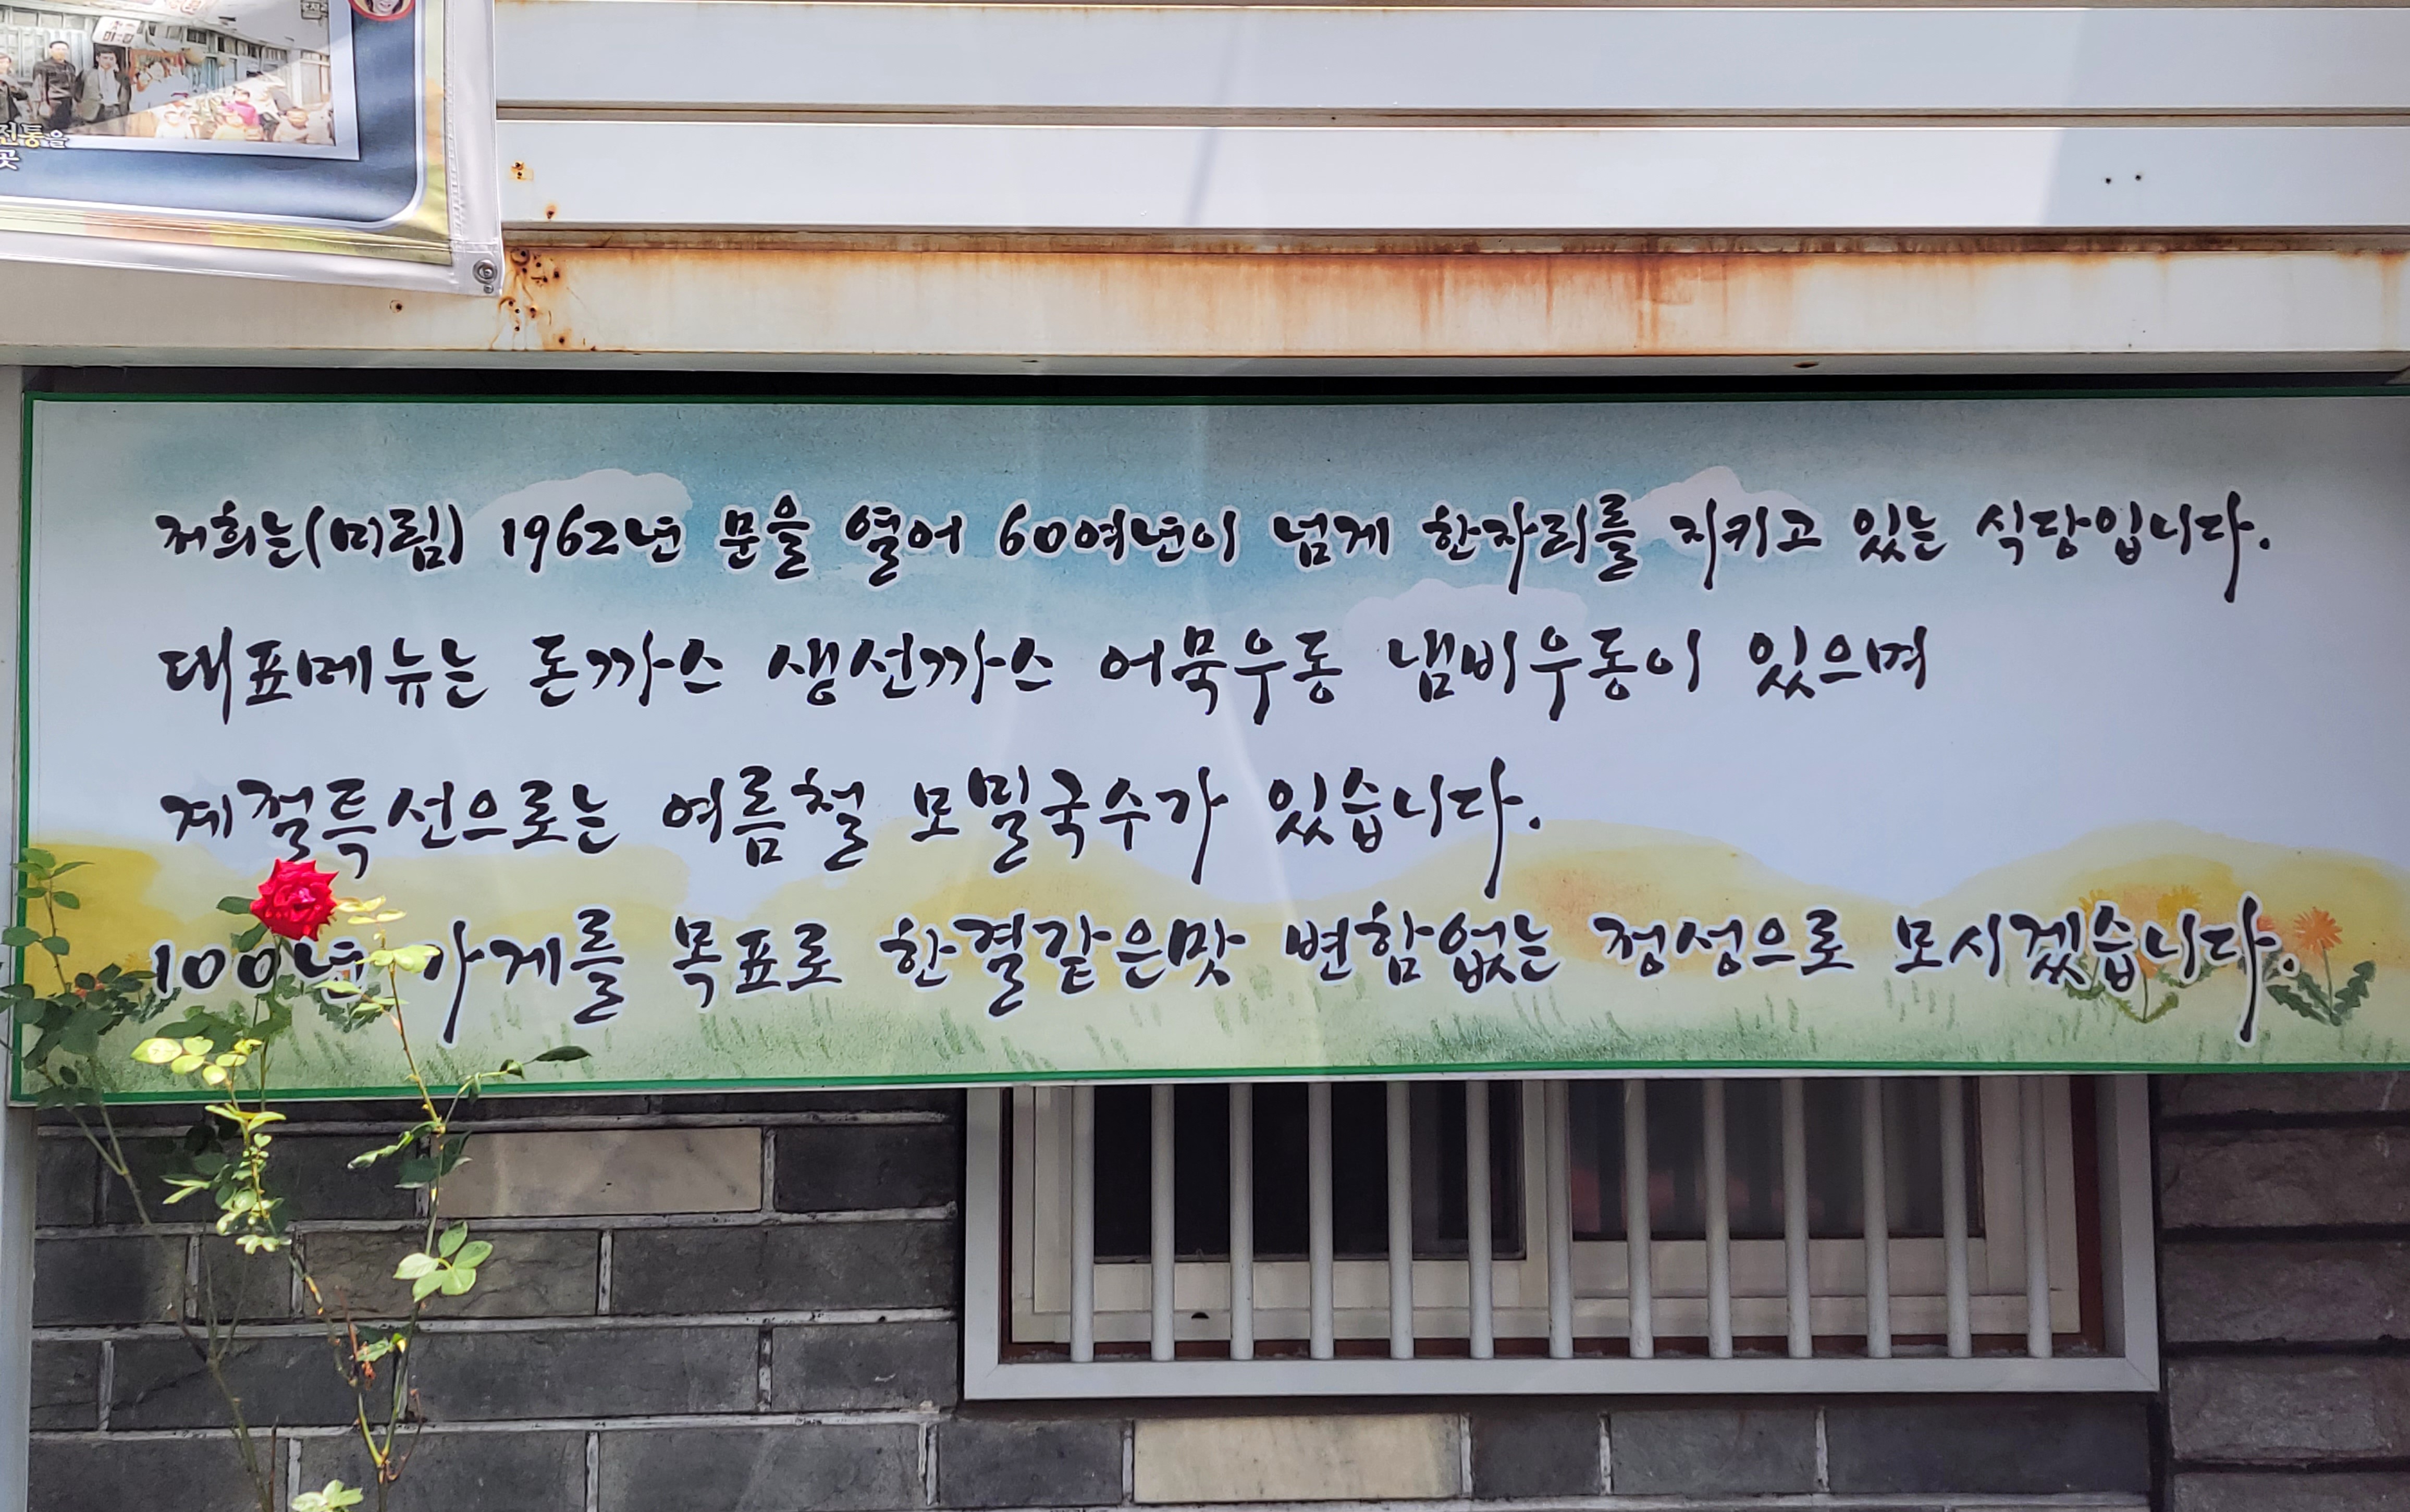 전통을
곳
저희는(미림) 1962년 문을 열어 60여년이 넘게 한자리를 지키고 있는 식당입니다.
대표메뉴는 돈까스 생선까스 어묵우동 냄비우동이 있으며
제철특선으로는 여름철 모밀국수가 있습니다.
100년 가게를 목표로 한결같은맛 변함없는 정성으로 모시겠습니다.